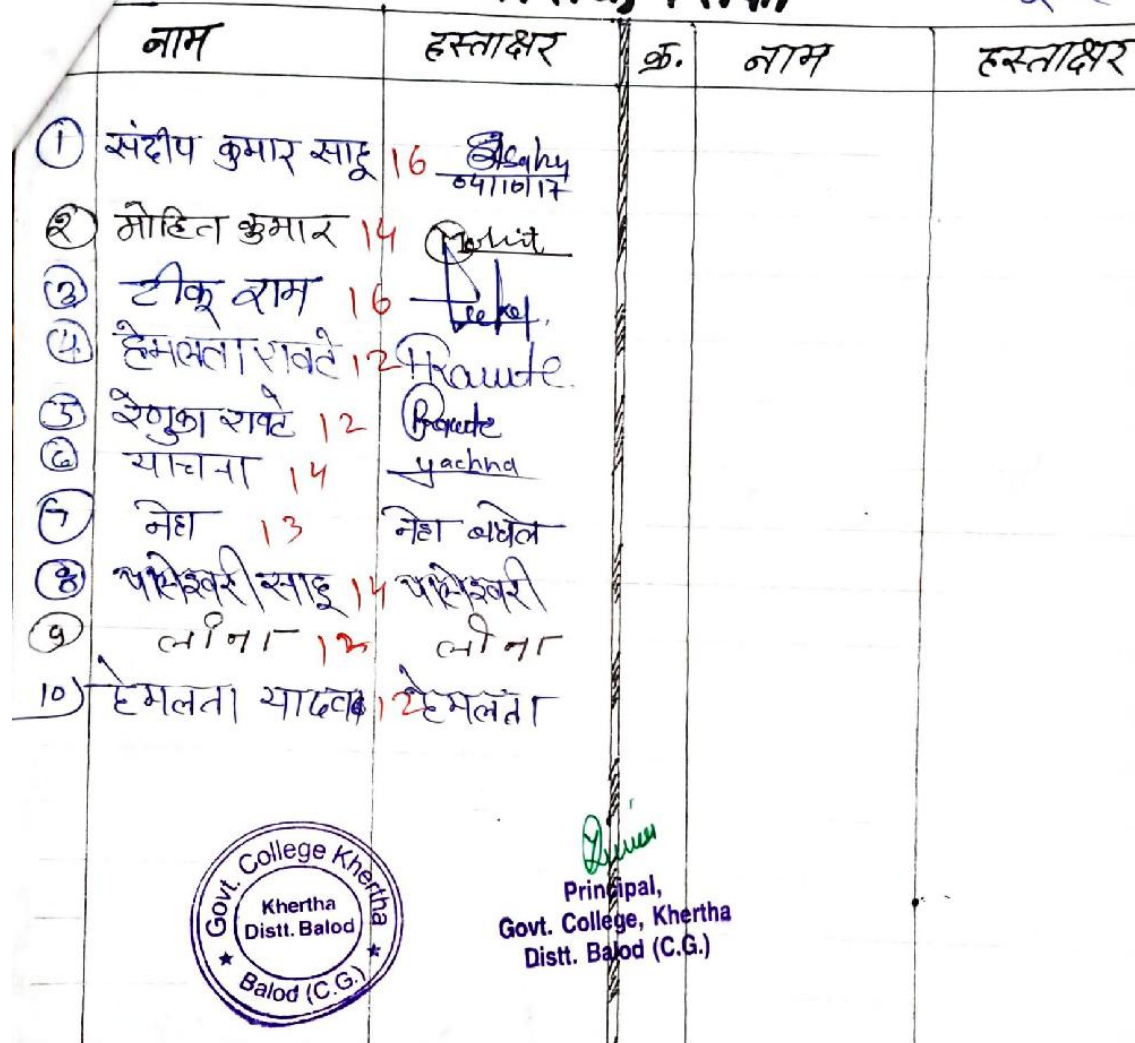 नाम हस्ताक्षर क्र. नाम हस्ताक्षर
1 संदीप कुमार साहू 16 Sahu
04/10/17
2 मोहित कुमार 14 Mohit
3 टीकू राम 16
4 हेमलता रावटे 12 HRawte.
5 रेणुका रावटे 12 Rawte
6 याचना 14 yachna
7 नेहा 13 नेहा बघेल
8 साहू 14
9 लीना 12 लीना
10) हेमलता यादव 12 हेमलता
Govt. College Khertha
Khertha
Distt. Balod
★ Balod (C.G.) ★
Principal,
Govt. College, Khertha
Distt. Balod (C.G.)